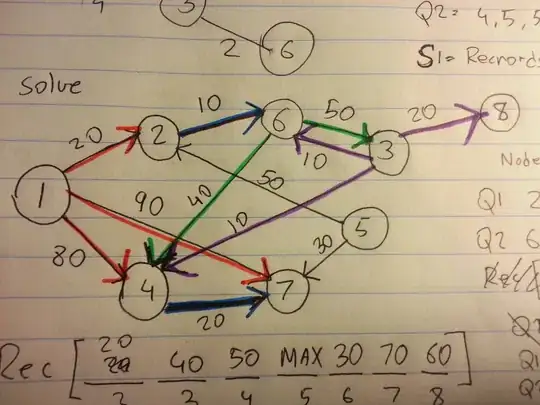 3
2 6
Q2 = 4, 5, 5
S1= Recnords
solve
10 6 50 20 8
20 2 3
10
Node
1 90 40 50 5
Q1 2
10 30
Q2 6
80 4 7
20
Rec [ 20 40 50 MAX 30 70 60 ]
2 3 4 5 6 7 8
Q1